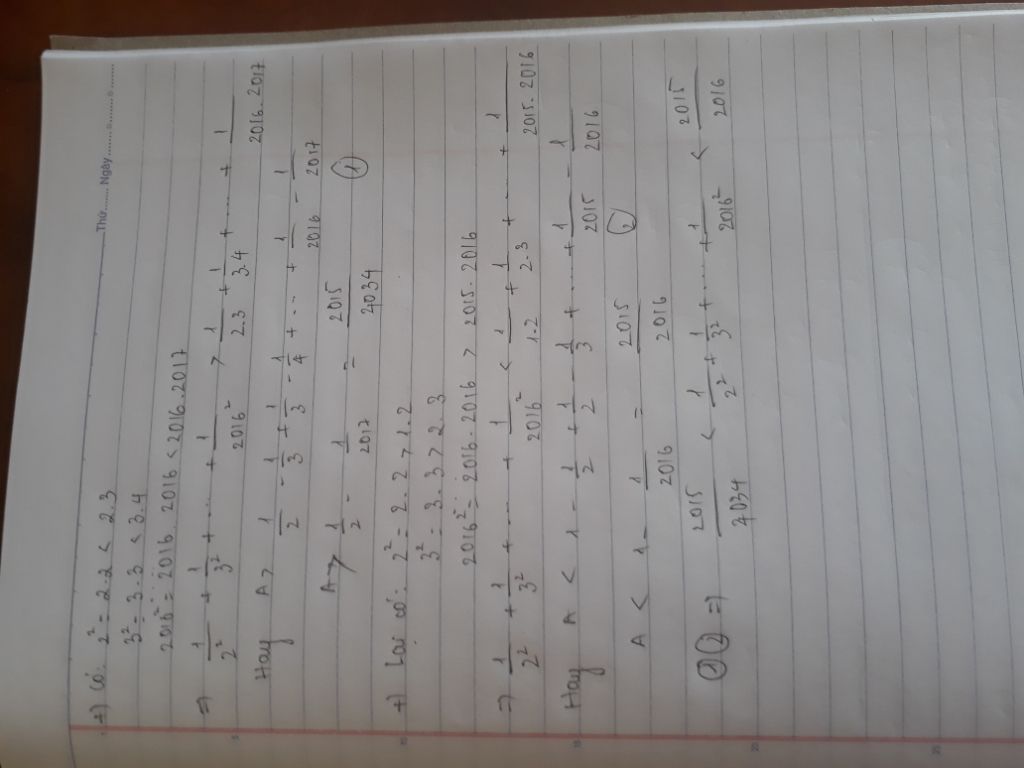 Thứ........ Ngày..........
+) Có: 2² = 2.2 < 2.3
3² = 3.3 < 3.4
2016² = 2016.2016 < 2016.2017
=> 1/2² + 1/3² + .... + 1/2016² > 1/2.3 + 1/3.4 + .... + 1/2016.2017
Hay A > 1/2 - 1/3 + 1/3 - 1/4 + ... + 1/2016 - 1/2017
A > 1/2 - 1/2017 = 2015/4034 ①
+) Lại có: 2² = 2.2 > 1.2
3² = 3.3 > 2.3
2016² = 2016.2016 > 2015.2016
=> 1/2² + 1/3² + ... + 1/2016² < 1/1.2 + 1/2.3 + .... + 1/2015.2016
Hay A < 1 - 1/2 + 1/2 - 1/3 + .... + 1/2015 - 1/2016
A < 1 - 1/2016 = 2015/2016 ②
①② => 2015/4034 < 1/2² + 1/3² + .... + 1/2016² < 2015/2016